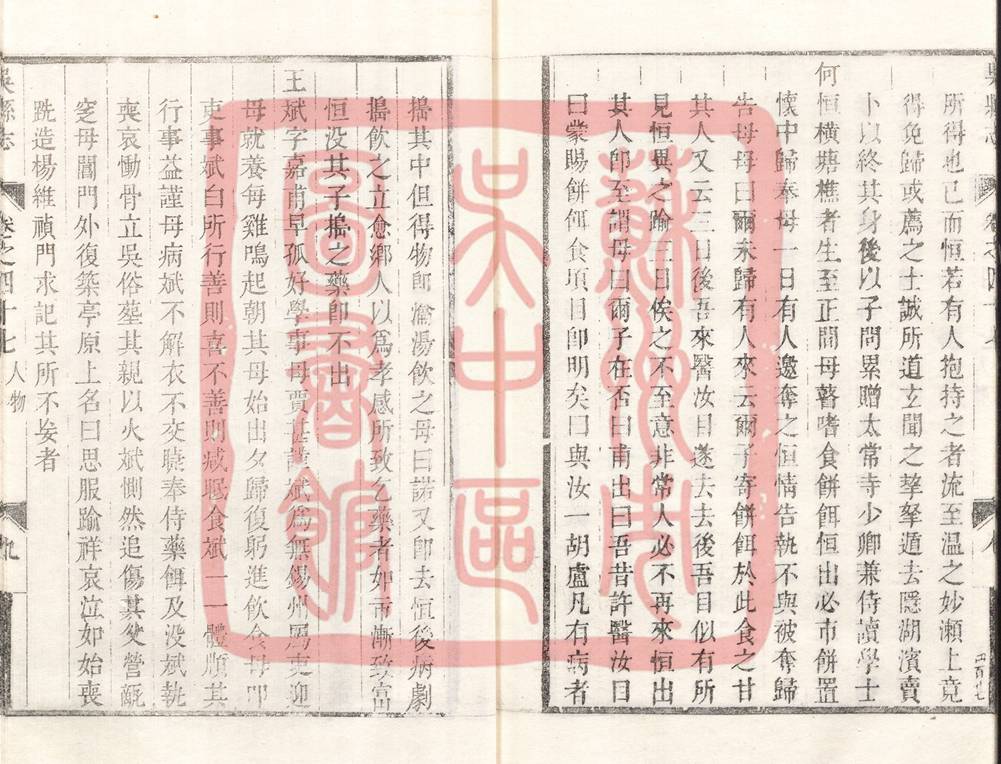 吳縣志 卷之四十七
所得也已而恒若有人抱持之者流至温之妙瀨上竟
得免歸或薦之士誠所道玄聞之挈孥遁去隱湖濱賣
卜以終其身後以子問累贈太常寺少卿兼侍讀學士
何恒橫塘樵者生至正間母瞽嗜食餅餌恒出必市餅置
懷中歸奉母一日有人邀奪之恒情告執不與被奪歸
告母母曰爾未歸有人來云爾子寄餅餌於此食之甘
其人又云三日後吾來醫汝目遂去去後吾目似有所
見恒異之踰三日俟之不至意非常人必不再來恒出
其人卽至謂母曰爾子在否曰甫出曰吾昔許醫汝目
曰蒙賜餅餌食項目卽明矣曰與汝一胡盧凡有病者
擣其中但得物卽瀹湯飲之母曰諾又卽去恒後病劇
擣飲之立愈鄉人以爲孝感所致乞藥者如市漸致富
恒没其子擣之藥卽不出
王斌字嘉甫早孤好學事母賈甚謹斌爲無錫州屬吏迎
母就養每雞鳴起朝其母始出夕歸復躬進飲食母叩
吏事斌白所行善則喜不善則减眠食斌一一體順其
行事益謹母病斌不解衣不交睫奉侍藥餌及没斌執
喪哀慟骨立吳俗塟其親以火斌惻然追傷其父營巵
窆母閶門外復築亭原上名曰思服踰祥哀泣如始喪
跣造楊維禎門求記其所不妄者
吳縣志 卷之四十七 人物 九
蘇州市
吳中區
圖書館